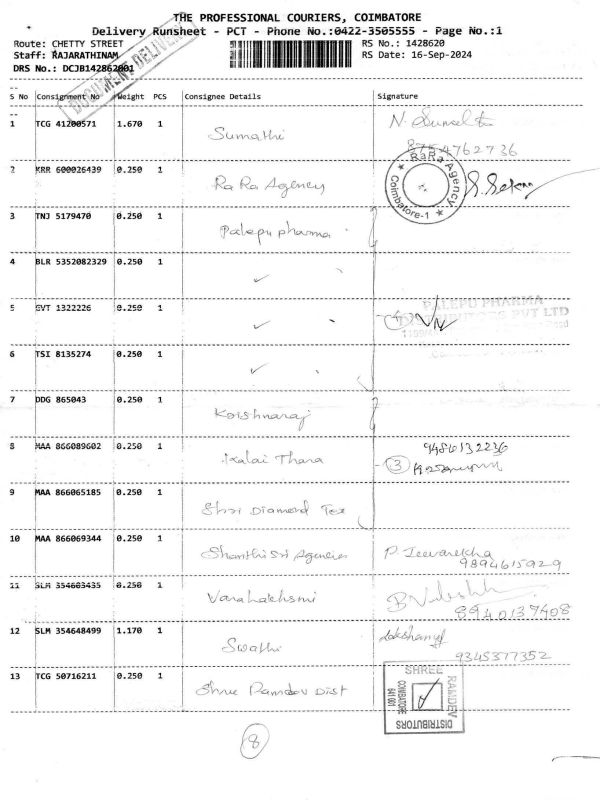 THE PROFESSIONAL COURIERS, COIMBATORE
Delivery Runsheet - PCT - Phone No.:0422-3505555 - Page No.:1
Route: CHETTY STREET RS No.: 1428620
Staff: RAJARATHINAM RS Date: 16-Sep-2024
DRS No.: DCJB142862001
DOCUMENT DELIVERY
S No Consignment No Weight PCS Consignee Details Signature
1 TCG 41200571 1.670 1 Sumathi N.
8754762736
2 KRR 600026439 0.250 1 RaRa Agency RaRa Agency Coimbatore-1 S.Sekar
3 TNJ 5179470 0.250 1 Palepu pharma
4 BLR 5352082329 0.250 1 ✓
5 GVT 1322226 0.250 1 ✓ 4 PALEPU PHARMA
DISTRIBUTORS PVT LTD
6 TSI 8135274 0.250 1 ✓
7 DDG 865043 0.250 1 Krishnaraj
8 MAA 866089602 0.250 1 Kalai Thara 3 9486132236
9 MAA 866065185 0.250 1 Shri Diamond Tex
10 MAA 866069344 0.250 1 Shanthi Sri Agencies P. Jeevarekha
9894615929
11 SLM 354603435 0.250 1 Varahalakhsmi
8940137408
12 SLM 354648499 1.170 1 Swathi
9345377352
13 TCG 50716211 0.250 1 Shree Ramdev Dist SHREE RAMDEV DISTRIBUTORS COIMBATORE 641 001
8